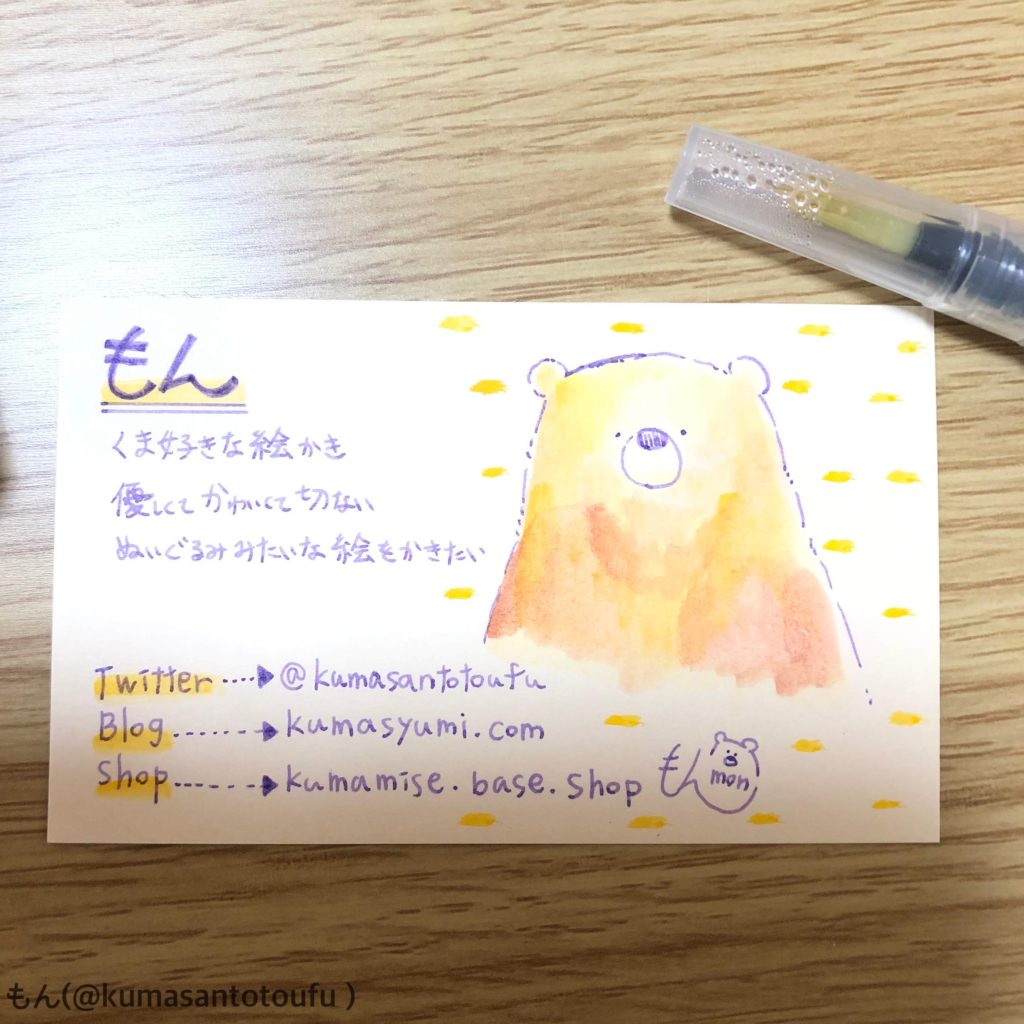 もん
くま好きな絵かき
優しくてかわいくて切ない
ぬいぐるみみたいな絵をかきたい
Twitter @kumasantotoufu
Blog kumasyumi.com
Shop kumamise.base.shop
もん mon
もん(@kumasantotoufu )